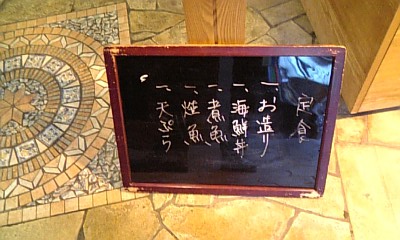 定食
一、お造り
一、海鮮丼
一、煮魚
一、焼魚
一、天ぷら